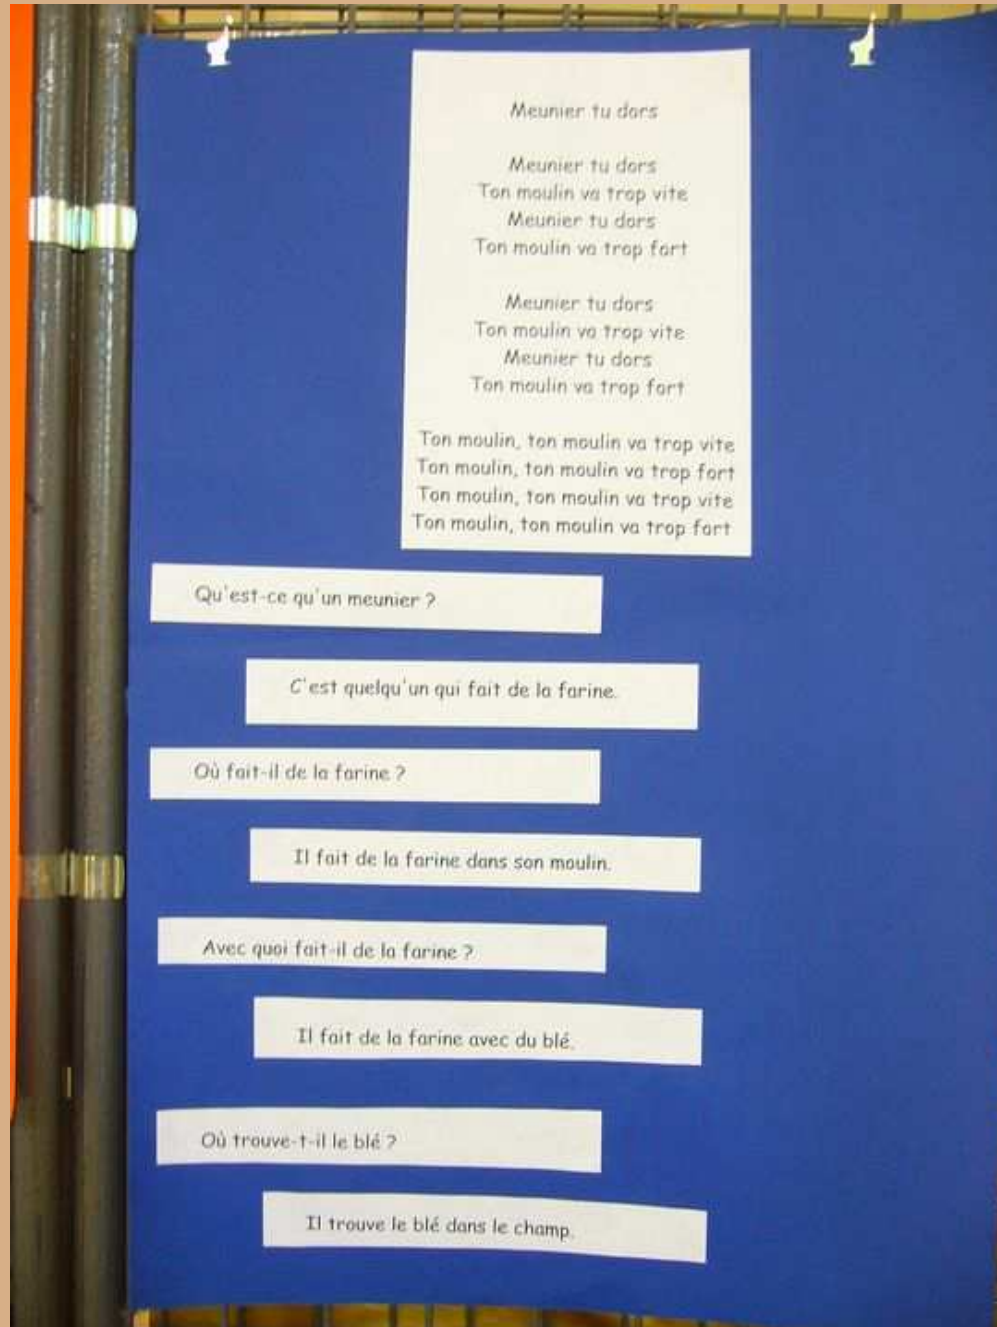 Meunier tu dors
Meunier tu dors
Ton moulin va trop vite
Meunier tu dors
Ton moulin va trop fort
Meunier tu dors
Ton moulin va trop vite
Meunier tu dors
Ton moulin va trop fort
Ton moulin, ton moulin va trop vite
Ton moulin, ton moulin va trop fort
Ton moulin, ton moulin va trop vite
Ton moulin, ton moulin va trop fort
Qu'est-ce qu'un meunier ?
C'est quelqu'un qui fait de la farine.
Où fait-il de la farine ?
Il fait de la farine dans son moulin.
Avec quoi fait-il de la farine ?
Il fait de la farine avec du blé.
Où trouve-t-il le blé ?
Il trouve le blé dans le champ.